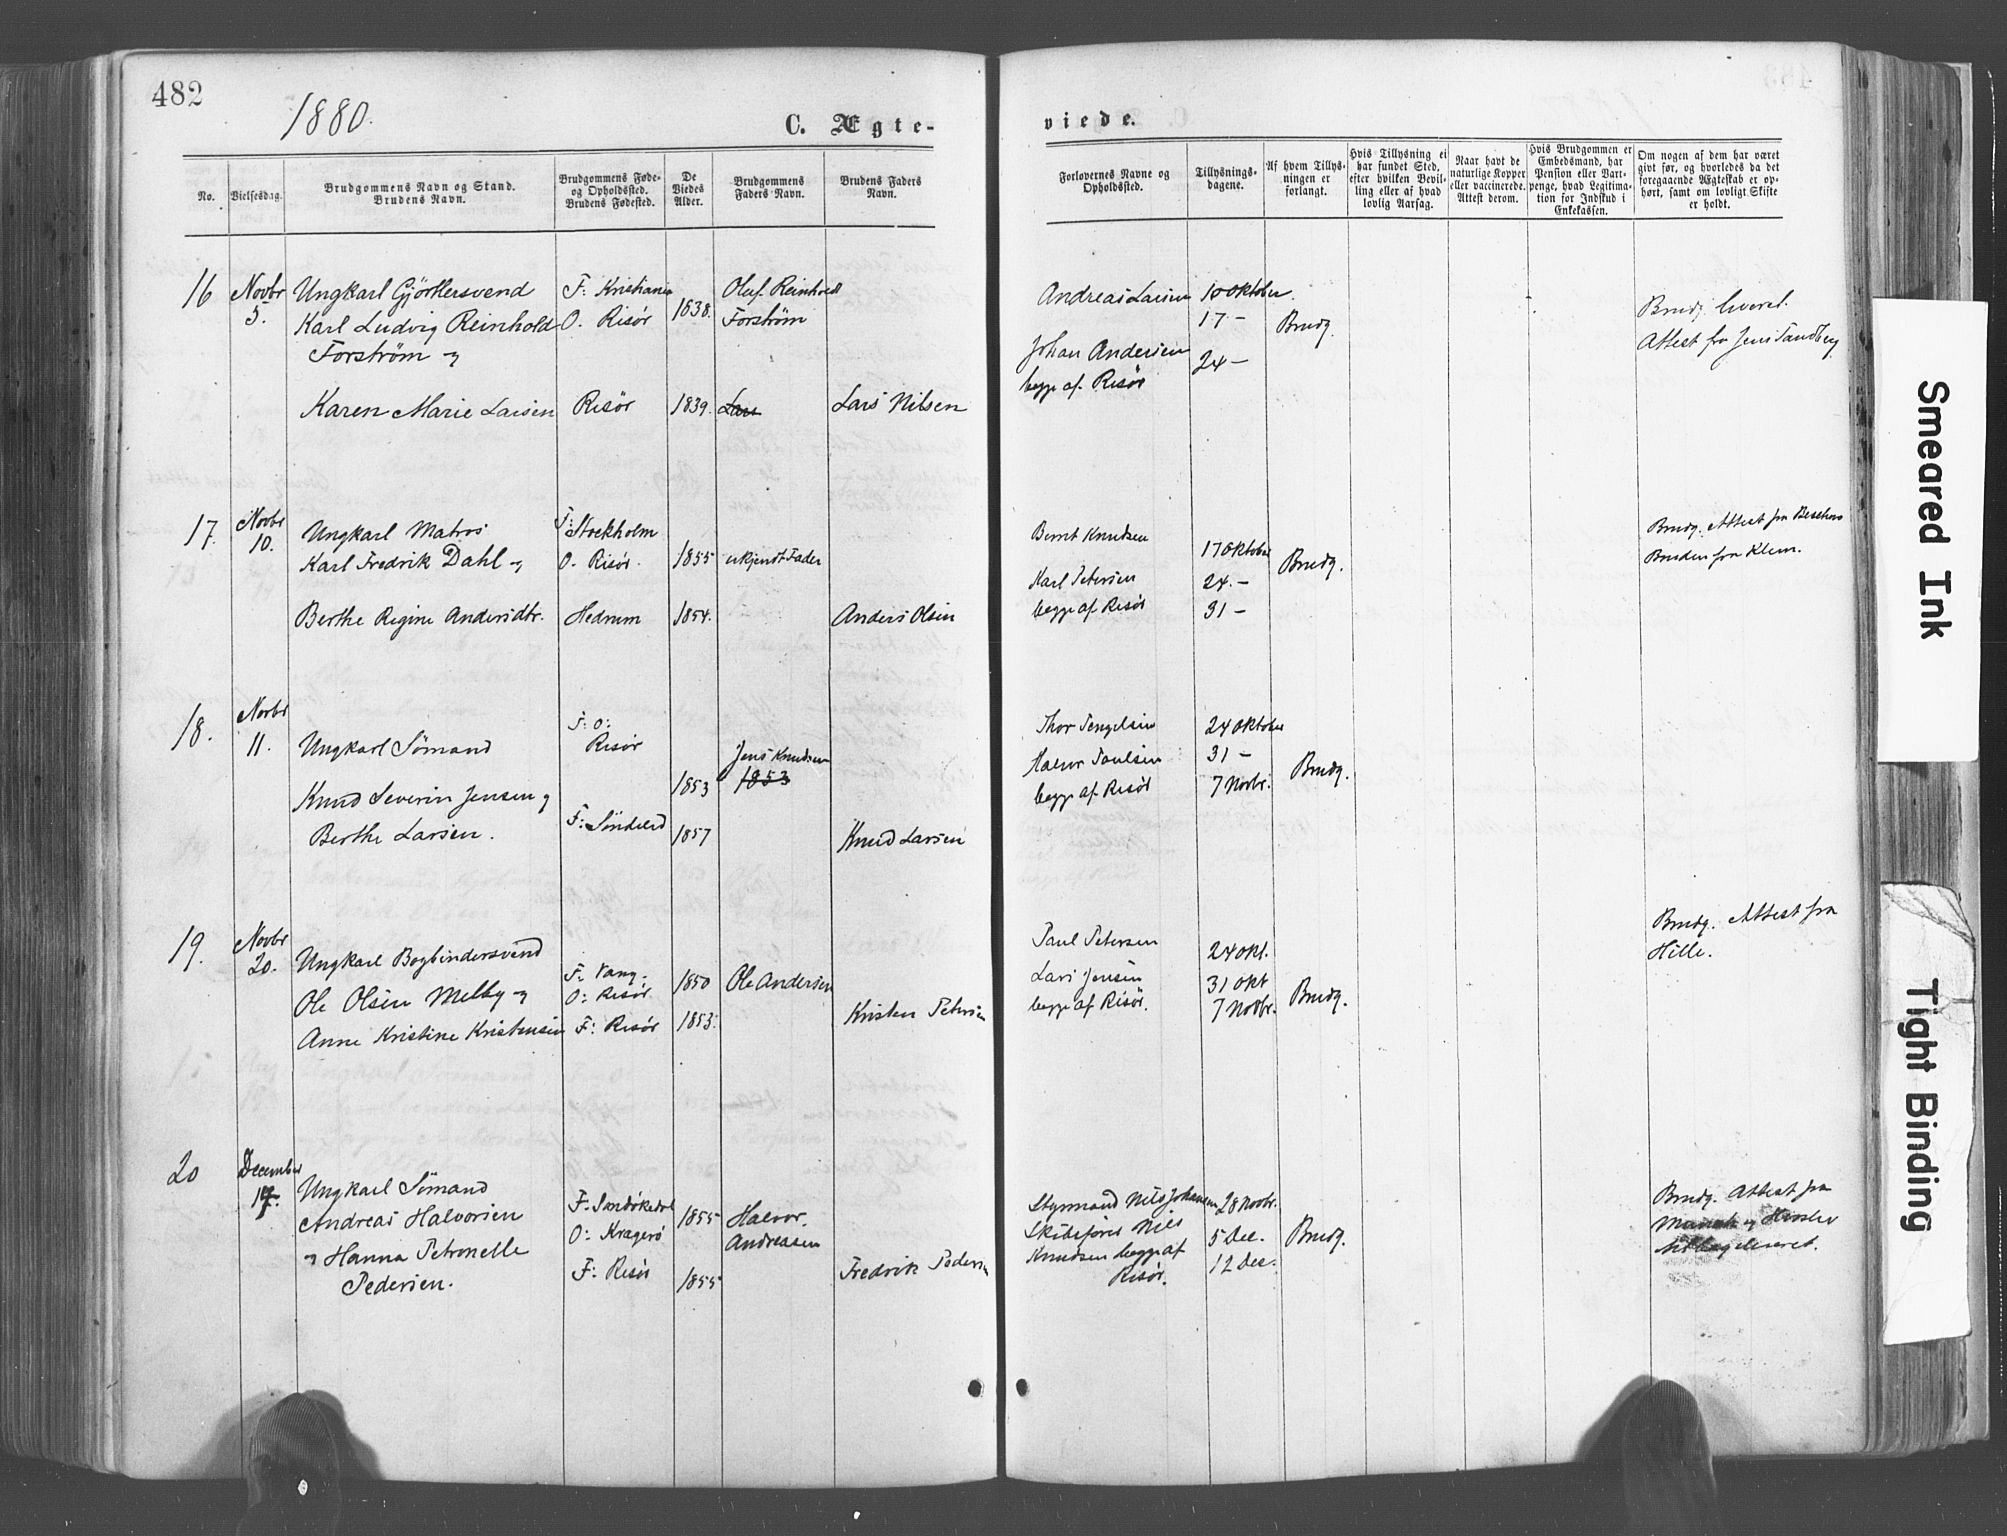 482
1880.
C. Ægte-
viede.
No.
Vielsesdag.
Brudgommens Navn og Stand.
Brudens Navn.
Brudgommens Føde-
og Opholdssted.
Brudens Fødested.
De
Viedes
Alder.
Brudgommens
Faders Navn.
Brudens Faders
Navn.
Forlovernes Navne og
Opholdssted.
Tillysnings-
dagene.
Af hvem Tillys-
ningen er
forlangt.
Hvis Tillysning ei
har fundet Sted,
efter hvilken Bevil-
ling eller af hvad
lovlig Aarsag.
Naar havt de
naturlige Kopper
eller vaccinerede.
Attest derom.
Hvis Brudgommen er
Embedsmand, har
Pension eller Vart-
penge, hvad Legitima-
tion for Indskud i
Enkekassen.
Om nogen af dem har været
givt før, og hvorledes da det
foregaaende Ægteskab er op-
hørt, samt om lovligt Skifte
er holdt.
16
Novbr
5.
Ungkarl Gjørtlersvend
Karl Ludvig Reinhold
Forstrøm og
Karen Marie Larsen
F: Kristiania
O. Risør
Risør
1838.
1839.
Oluf Reinhold
Forstrøm
Lars
Lars Nilsen
Andreas Larsen
Johan Andersen
begge af Risør
10 Oktober.
17 -
24 -
Brudg.
Brudg. leveret
Attest fra Jens Sandberg
17.
Novbr
10.
Ungkarl Matros
Karl Fredrik Dahl og
Berthe Regine Andersdtr.
F: Stockholm
O. Risør.
Hedrum
1855
1854.
ukjendt Fader
Anders Olsen
Bernt Knudsen
Karl Petersen
begge af Risør
17 Oktober
24. -
31 -
Brudg.
Brudg. Attest fra
Bruden fra Klem.
18.
Novbr
11.
Ungkarl Sømand
Knud Severin Jensen og
Berthe Larsen.
F: O:
Risør
F: Søndeled
1853
1857
Jens Knudsen
1853
Knud Larsen
Thor
Halvor Paulsen
begge af Risør
24 Oktober
31 -
7 Novbr.
Brudg.
19.
Novbr
20.
Ungkarl Bogbindersvend
Ole Olsen Melby og
Anne Kristine Kristensen
F: Vang.
O: Risør.
F: Risør
1850
1853.
Ole Andersen
Kristen Petersen
Paul Petersen
Lars Jensen
begge af Risør.
24 Okt.
31 Okt
7 Novbr.
Brudg.
Brudg. Attest fra
Hille.
20
December
17.
Ungkarl Sømand
Andreas Halvorsen
og Hanna Petronelle
Pedersen.
F: Sandøkedal
O: Kragerø
F: Risør
1855
1855
Halvor
Andreasen
Fredrik Pedersen
Styrmand Nils Johansen
Skibsfører Nils
Knudsen begge af
Risør.
28 Novbr.
5 Dec.
12 Dec.
Brudg.
Brudg. Attest fra
tilbageleveret.
Smeared Ink
Tight Binding